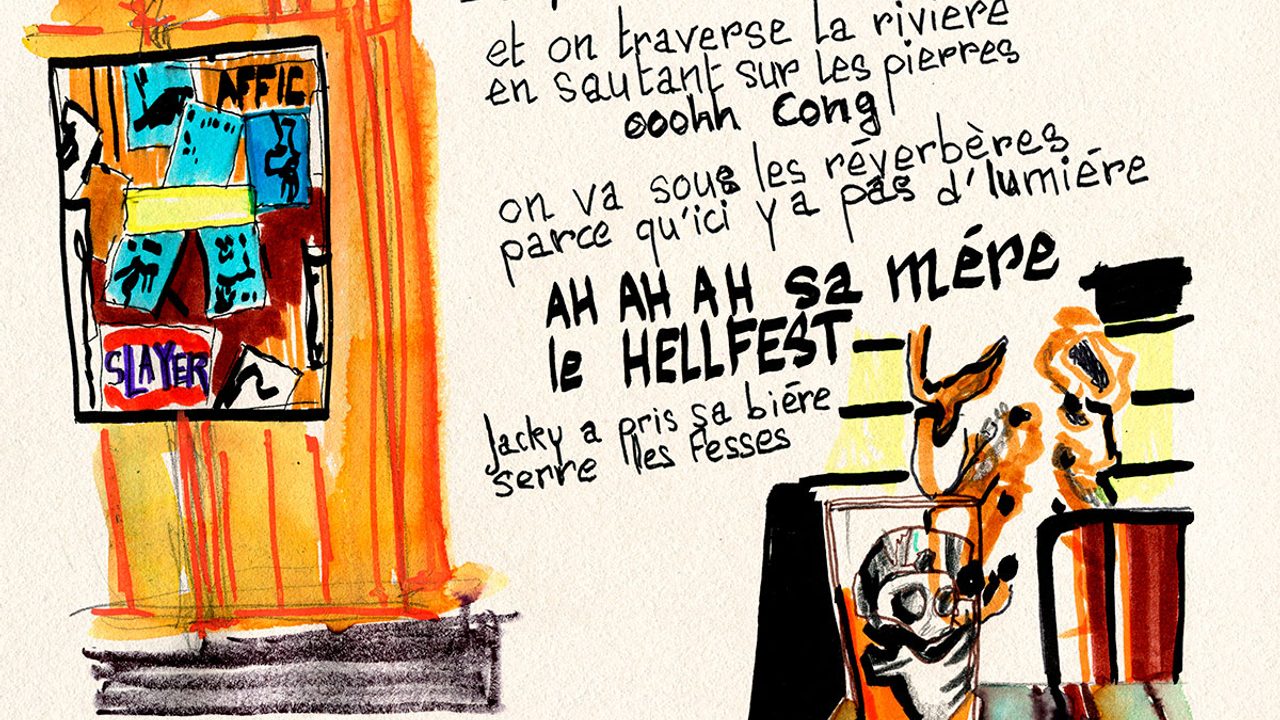 AFFIC
SLAYER
et on traverse la riviére
en sautant sur les pierres
ooohh Cong
on va sous les réverbères
parce qu'ici y a pas d'lumiére
AH AH AH sa mére
le HELLFEST
Jacky a pris sa biére
serre les fesses